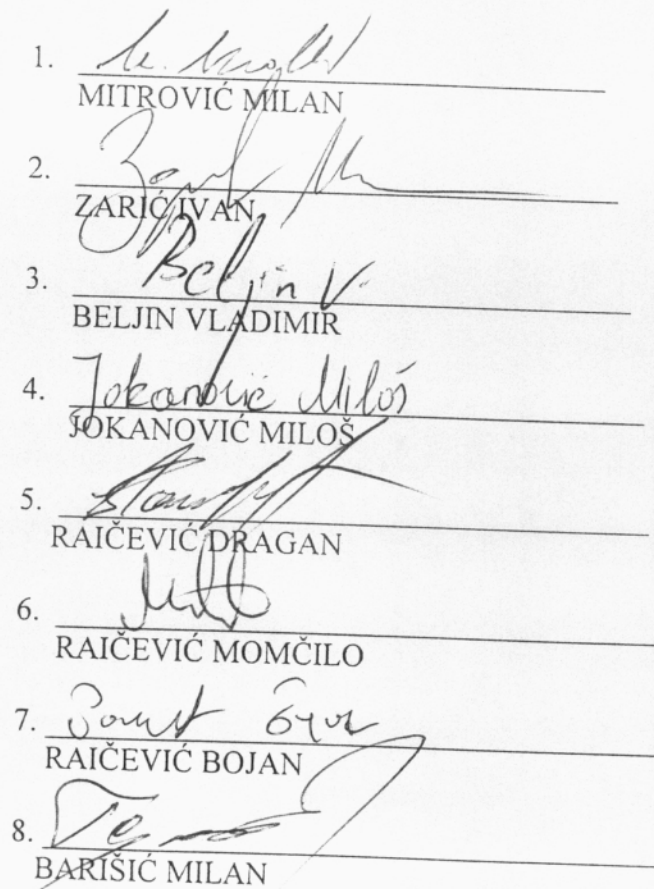 1.
MITROVIĆ MILAN
2.
ZARIĆ IVAN
3. Beljin V.
BELJIN VLADIMIR
4. Jokanović Miloš
JOKANOVIĆ MILOŠ
5.
RAIČEVIĆ DRAGAN
6.
RAIČEVIĆ MOMČILO
7.
RAIČEVIĆ BOJAN
8.
BARIŠIĆ MILAN